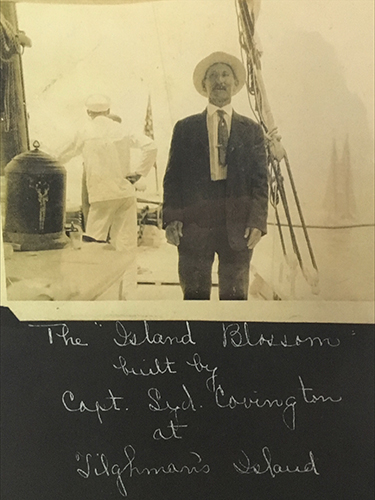 The "Island Blossom"
built by
Capt. Syd. Covington
at
Tilghman's Island